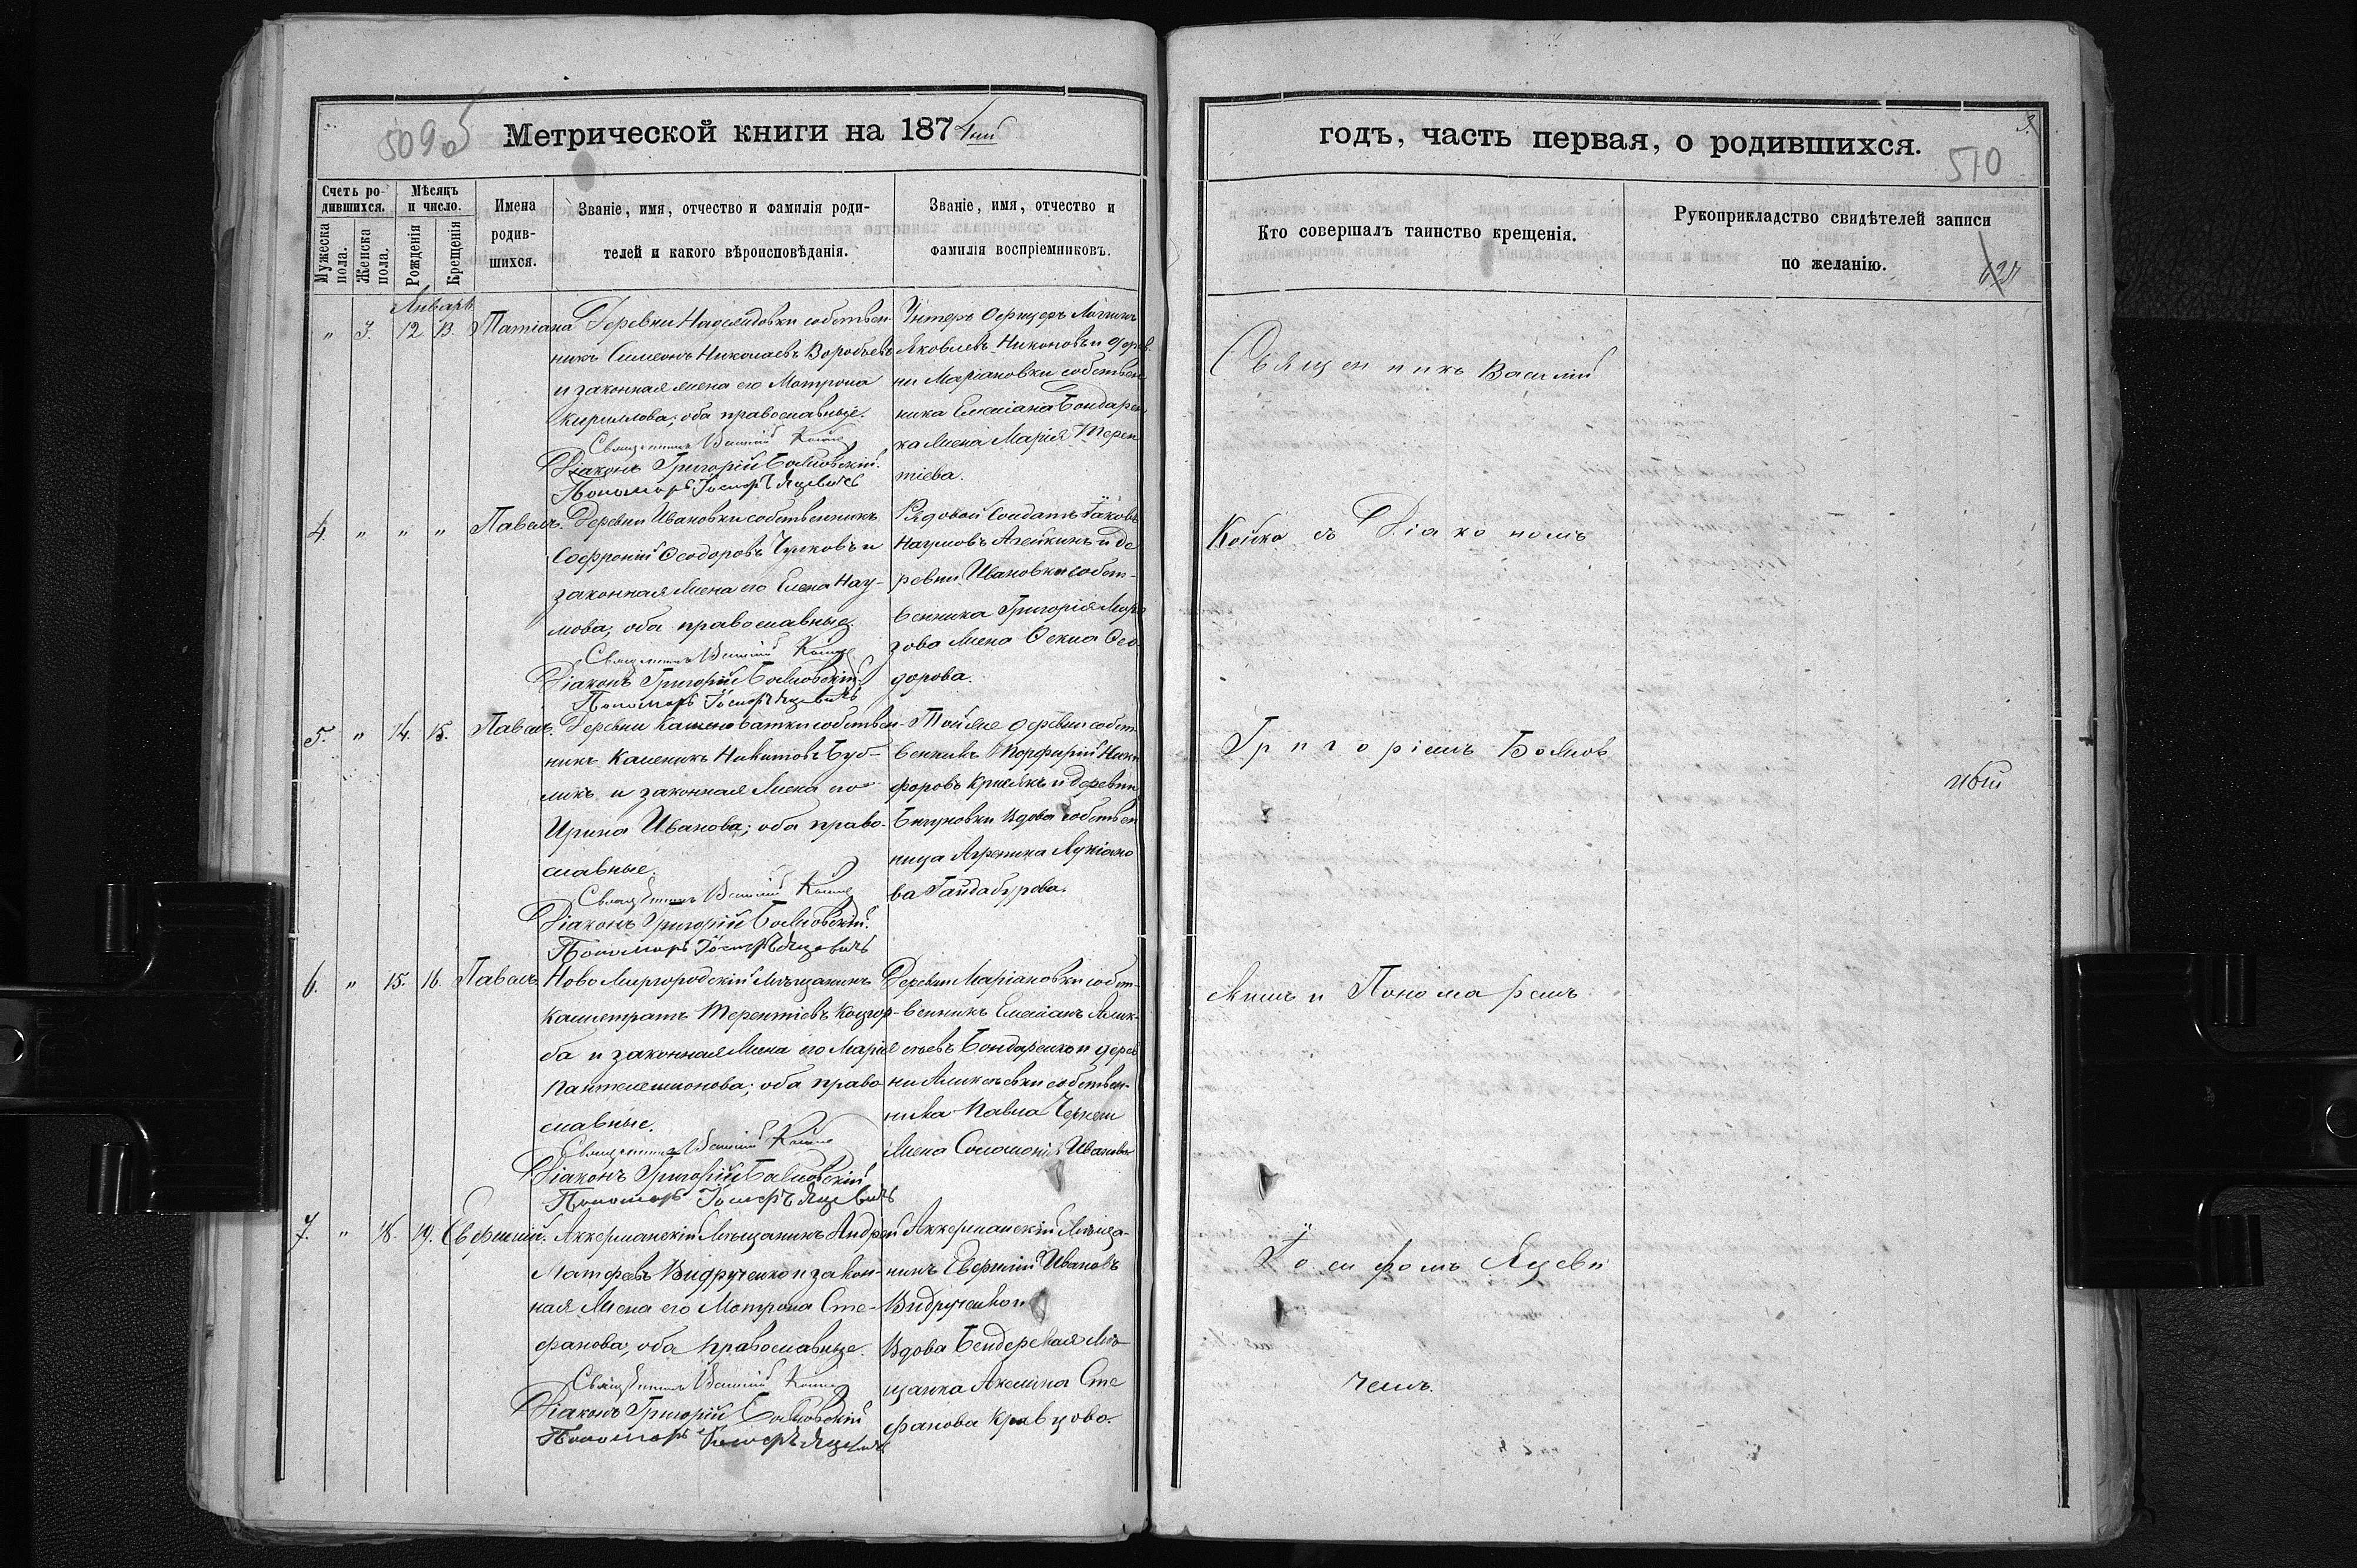 509 об
Метрической книги на 1874ый
Счетъ ро-
дившихся.
Мѣсяцъ
и число.
Мужеска
пола.
Женска
пола.
Рожденія
Крещенія
Имена
родив-
шихся.
Званіе, имя, отчество и фамилія роди-
телей и какого вѣроисповѣданія.
Званіе, имя, отчество и
фамилія воспріемниковъ.
Январь
" 3. 12 13. Татіана
Деревни собствен-
никъ Симеонъ Николаевъ Воробьевъ
и законная жена его Матрона
Кириллова; оба православные.
Священникъ Василій Койко
Діаконъ Григорій Божовскій.
Пономарь Іосифъ Яцевичъ
Унтеръ Офицеръ Логинъ
Яковлевъ Никоновъ и дерев-
ни Маріановки собствен-
ника Емеліана Бондарен-
ка жена Марія Терен
тіева.
4. " " " Павелъ.
Деревни Ивановки собственникъ
Софроній Ѳеодоровъ Чулковъ и
законная жена его Елена Нау-
мова; оба православные.
Священникъ Василій Койко
Діаконъ Григорій Божовскій.
Пономарь Іосифъ Яцевичъ
Рядовой Солдатъ Іаковъ
Наумовъ Агейкинъ и де
ревни Ивановки собст-
венника Григорія Моро
зова жена Ѳекла Ѳео
дорова.
5. " 14. 15. Павелъ.
Деревни Каменоватки собствен-
никъ Каленикъ Никитовъ Буб-
ликъ и законная жена его
Ирина Иванова; оба право-
славные.
Священникъ Василій Койко
Діаконъ Григорій Божовскій.
Пономарь Іосифъ Яцевичъ
Той же деревни собст
венникъ Порфирій Ники
форовъ и деревни
вдова собствен
ница Агрепина Лукіано
ва Гайдабурова.
6. " 15. 16. Павелъ
Ново Миргородскій мѣщанинъ
Калистратъ Терентіевъ Коцюр-
ба и законная жена его Марія
Пантелеимонова; оба право
славные.
Священникъ Василій Койко
Діаконъ Григорій Божовскій
Пономарь Іосифъ Яцевичъ
Деревни Маріановки собст-
венникъ Емеліанъ Алек-
сѣевъ Бондаренко и дерев
ни Алексѣевки собствен-
ника Павла Черкеш
жена Соломонія Иванова
7. " 18. 19. Евфимій.
Аккерманскій мѣщанинъ Андрей
Матфеевъ Видрученко и закон-
ная жена его Матрона Сте-
фанова, оба православные.
Священникъ Василій Койко
Діаконъ Григорій Божовскій
Пономарь Іосифъ Яцевичъ
Аккерманскій мѣща-
нинъ Евфимій Ивановъ
Видрученко и
вдова Бендерская мѣ-
щанка Акелина Сте
фанова Кравцова.
годъ, часть первая, о родившихся.
3.
510
Кто совершалъ таинство крещенія.
Рукоприкладство свидѣтелей записи
по желанію.
Священникъ Василій
Койко съ Діакономъ
Григоріемъ Божов
скимъ и Пономаремъ
Іосифомъ Яцеви
чемъ.